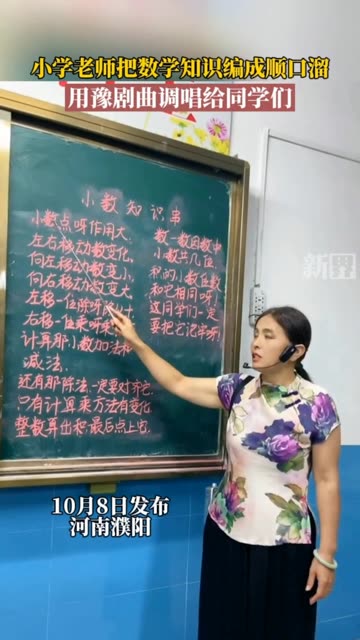 小学老师把数学知识编成顺口溜
用豫剧曲调唱给同学们
新界
小数知识串
小数点呀作用大.
左右移动数变化,
向左移动数变小,
向右移动数变大
左移一位除呀
右移一位乘呀
计算那小数加法和
减法.
还有那除法.一定要对齐它.
只有计算乘方法有变化
整数算出积最后点上它.
数一数因数中
小数共几位.
积的小数位数
和它相同呀!
这同学们一定
要把它记牢呀!
10月8日发布
河南濮阳